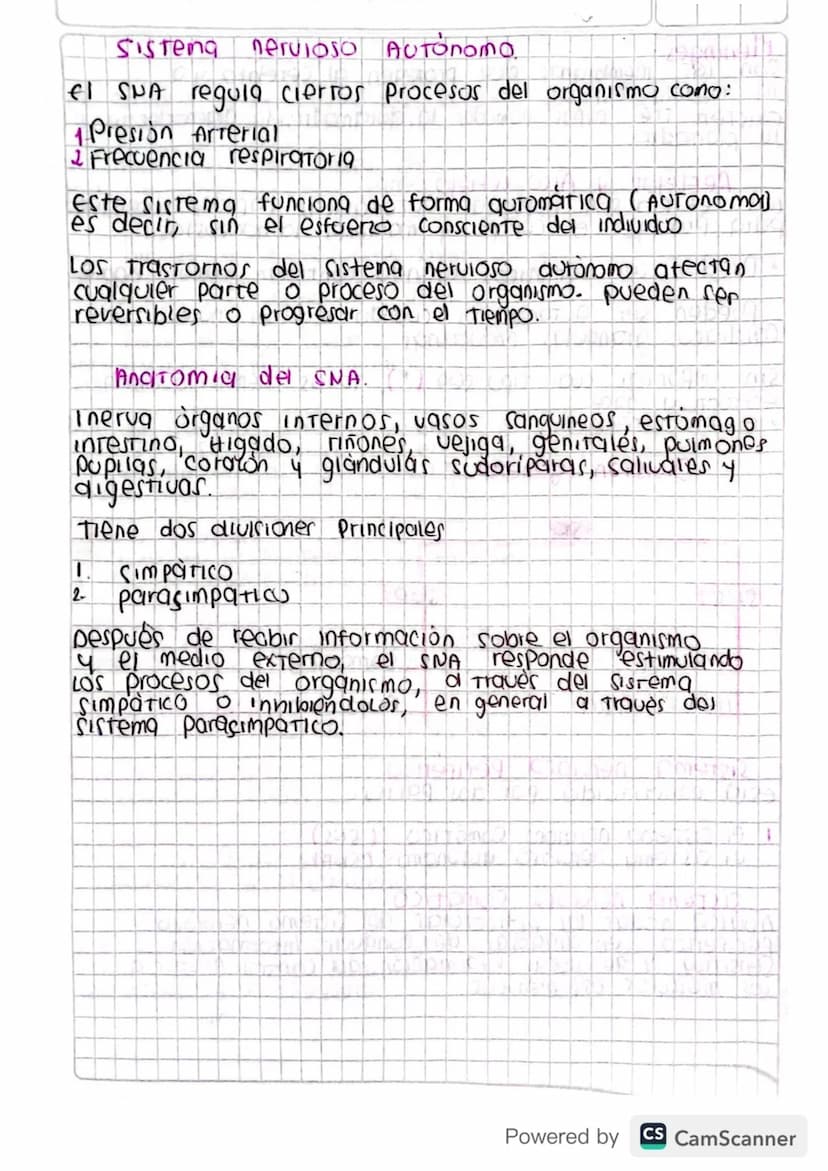 Sistema nervioso Autónomo.
El SNA regula ciertos procesos del organismo como:
1 Presión Arterial
2 Frecuencia respiratoria
Este sistema funciona de forma automática (Autonoma)
es decir, sin el esfuerzo consciente del individuo
Los trastornos del sistema nervioso autónomo afectan
cualquier parte o proceso del organismo. pueden ser
reversibles o progresar con el tiempo.
Anatomia del SNA.
Inerva órganos internos, vasos sanguineos, estómago
intestino, Higado, riñones, vejiga, genitales, pulmones
pupilas, corazón y glándulas sudoriparas, salivales y
digestivas.
Tiene dos divisiones Principales
1. Simpático
2. parasimpatico
Después de recibir información sobre el organismo
y el medio externo, el SNA responde estimulando
Los procesos del organismo, a través del sistema
simpático o inhibiéndolos, en general a través del
sistema parasimpático.
Powered by CS CamScanner